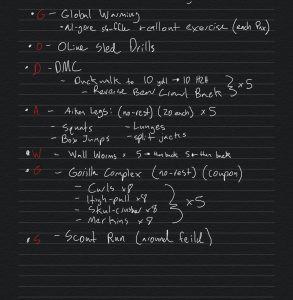 • G - Global Warming
- Al-gore shuffle callout exercise (each Pax)
• O - OLine Sled Drills
• D - DMC
- Duckwalk to 10 yd → 10 H2H
- Reverse Bear Crawl Back } x 5
• A - Aiken Legs: (no-rest) (20 each) x 5
- Squats - Lunges
- Box Jumps - split jacks
• W - Wall Worms x 5 → then back 5 then back
• G - Gorilla Complex (no-rest) (coupon)
- Curls x8
- High-pull x8
- Skul-crusher x8
- Merkins x8 } x5
• S - Scout Run (around feild)